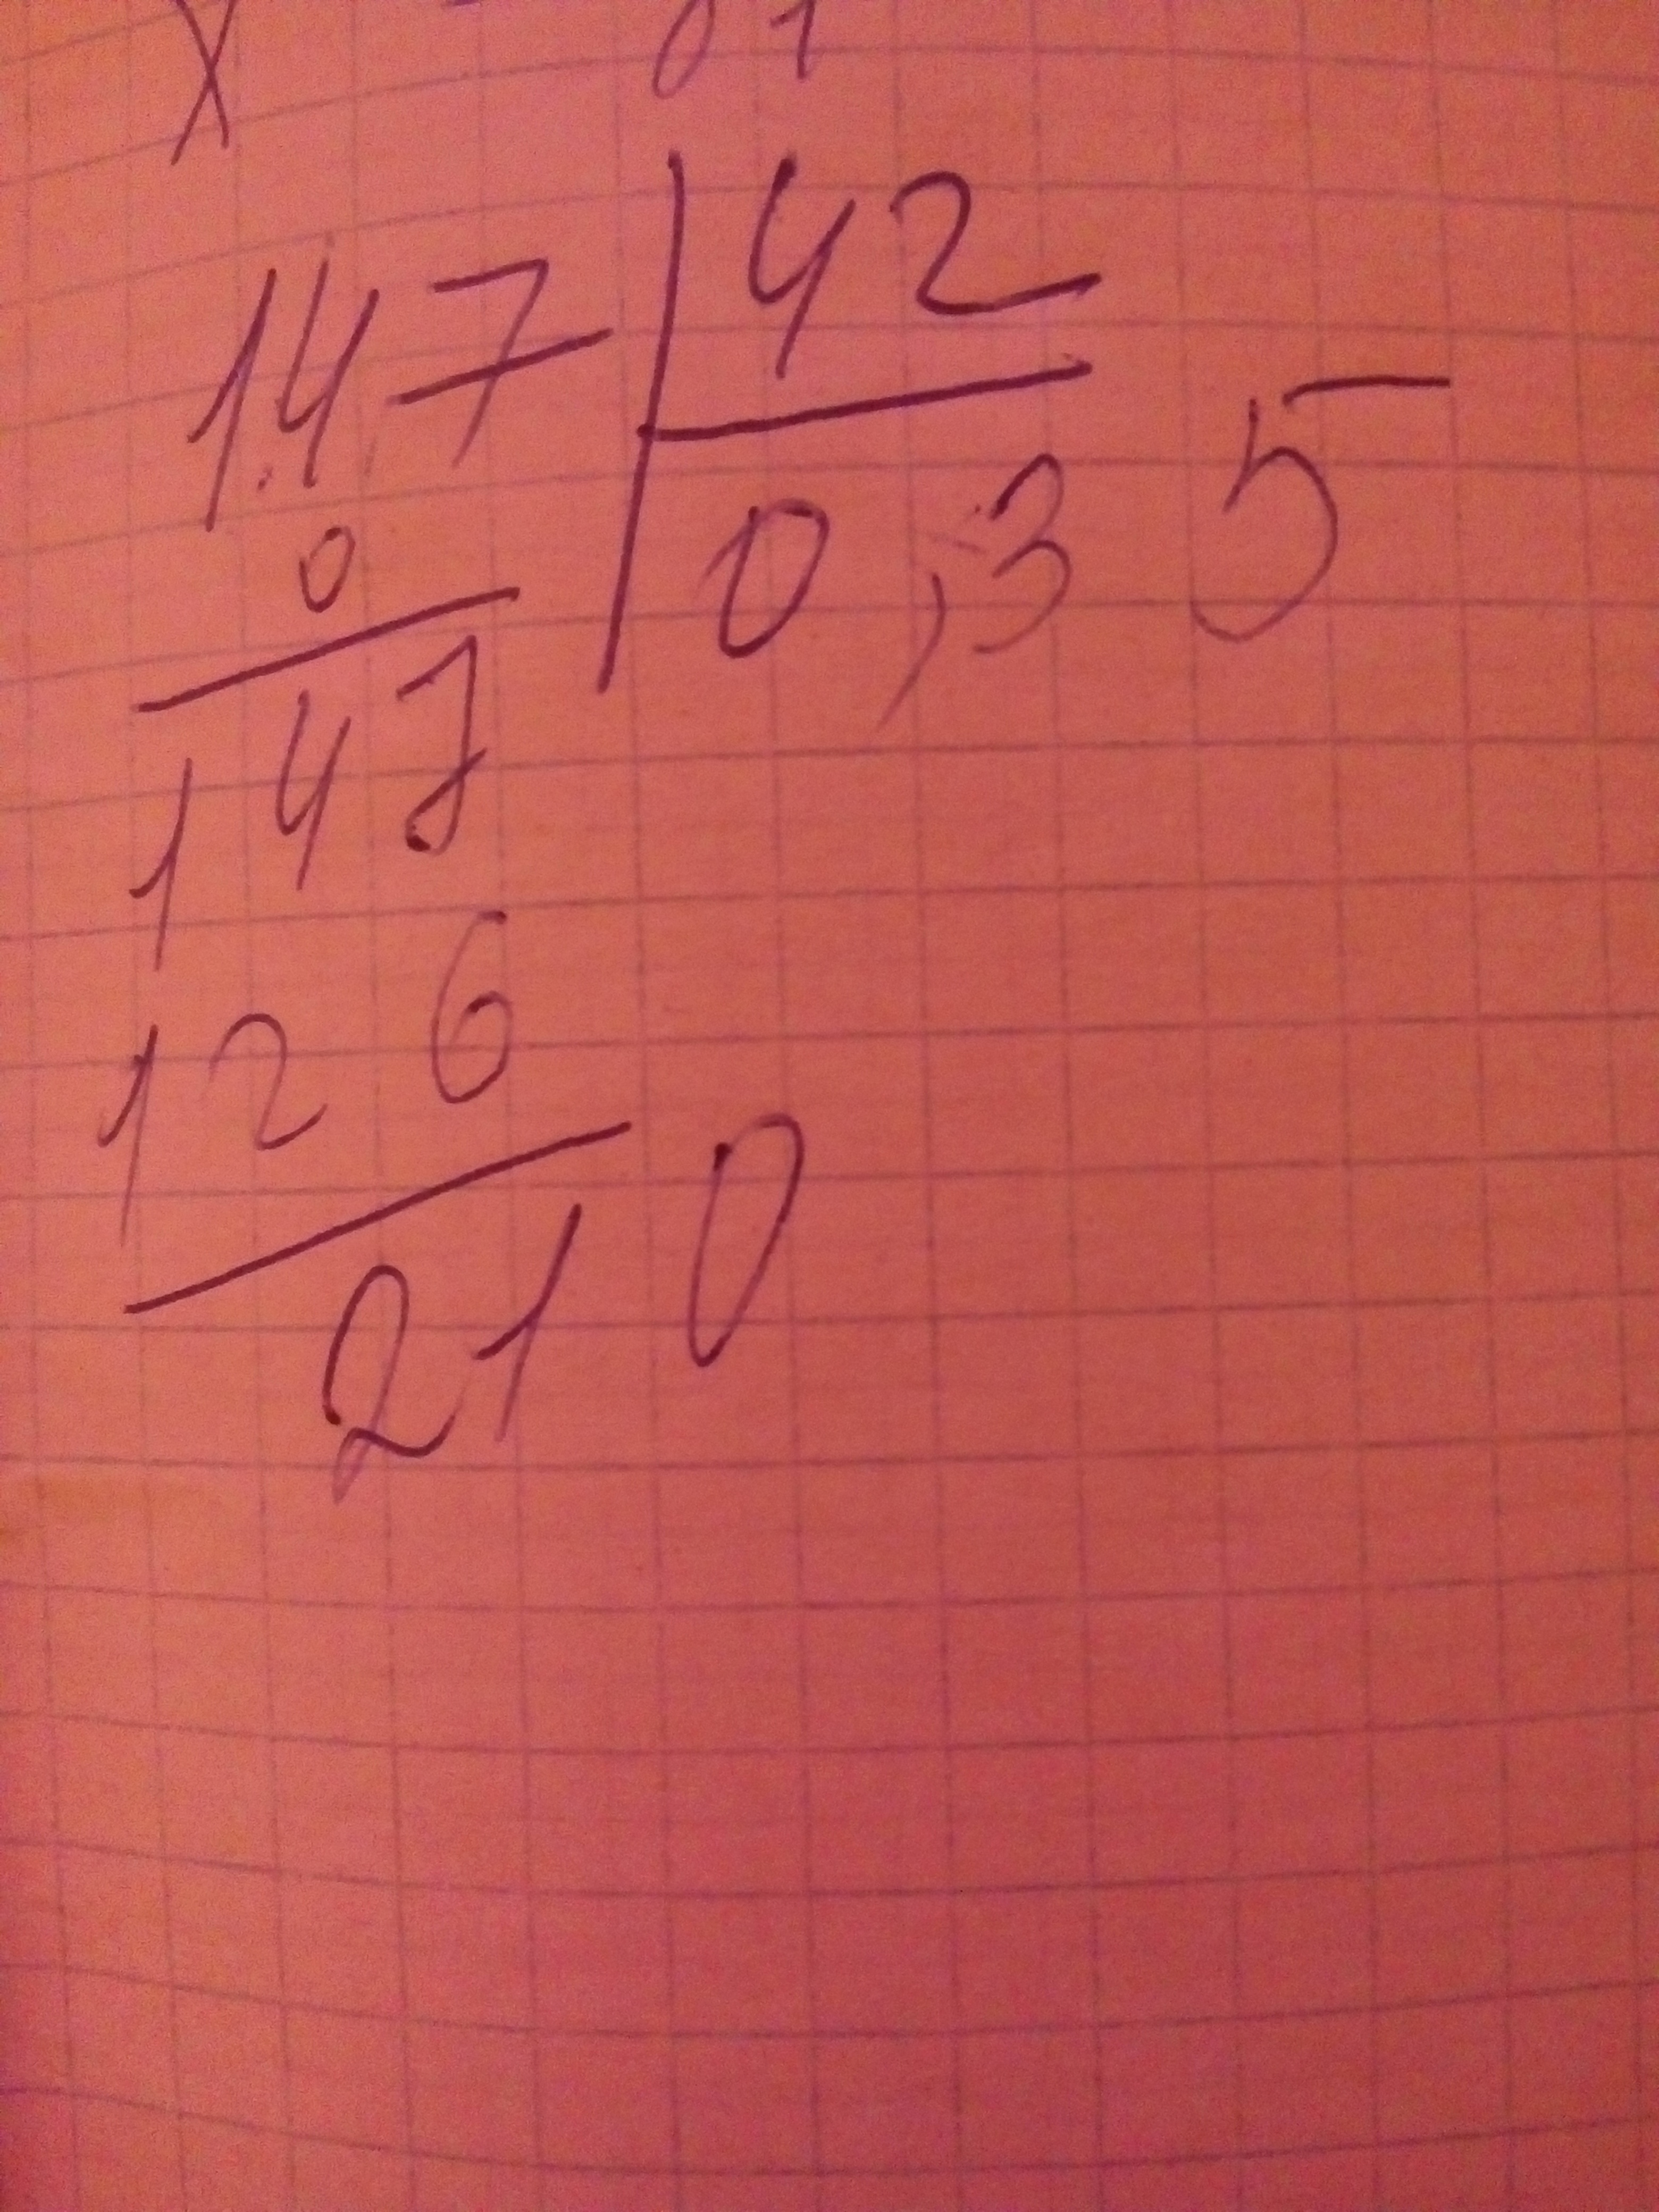 14,7 | 42
0,35
0
147
126
210